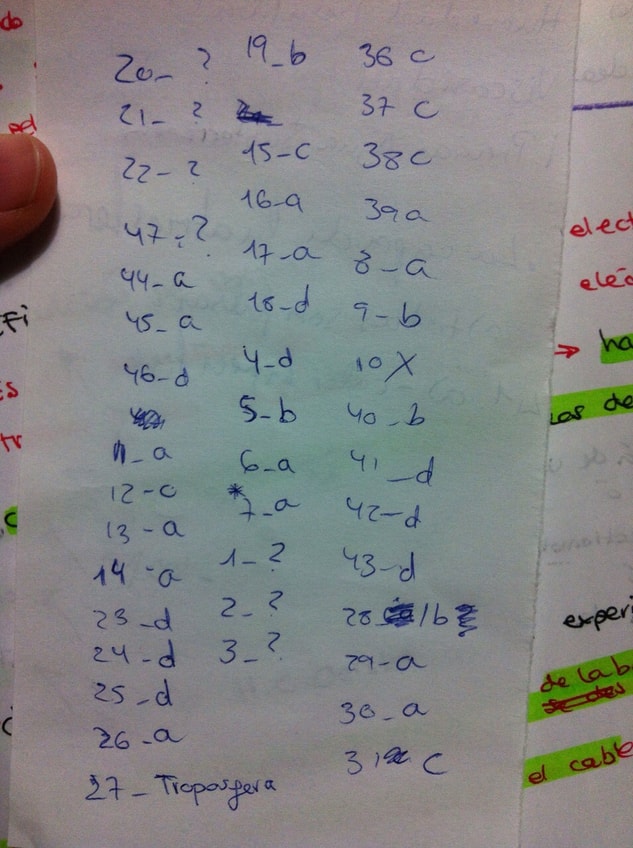 20_ ?
21_ ?
22_ ?
47_?
44_a
45_a
46_d
11_a
12_c
13_a
14_a
23_d
24_d
25_d
26_a
27_ Troposfera
19_b
15_c
16_a
17_a
18_d
4_d
5_b
6_a
*7_a
1_?
2_?
3_?
36 c
37 c
38 c
39 a
8_a
9_b
10 X
40_b
41_d
42_d
43_d
28_ /b
29_a
30_a
31 c
do
elect
ha
experi
de la b
el cable